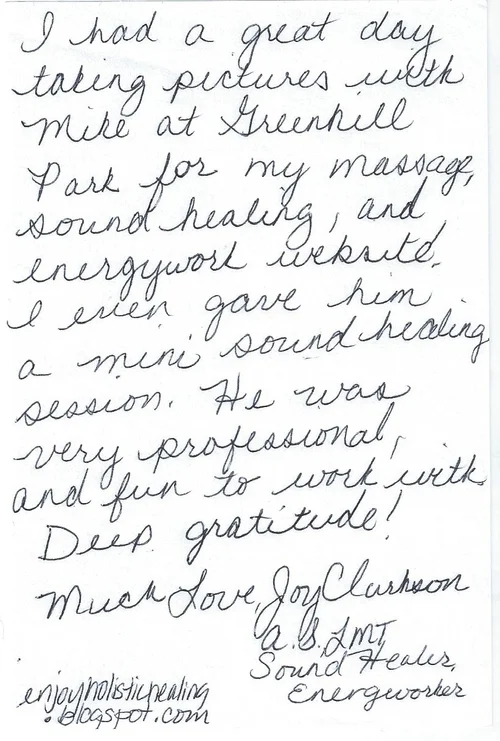 I had a great day
taking pictures with
Mike at Greenhill
Park for my massage,
sound healing, and
energywork website.
I even gave him
a mini sound healing
session. He was
very professional,
and fun to work with
Deep gratitude!
Much Love, Joy Clarkson
A.S., LMT,
Sound Healer,
Energworker
enjoyholistichealing
.blogspot.com